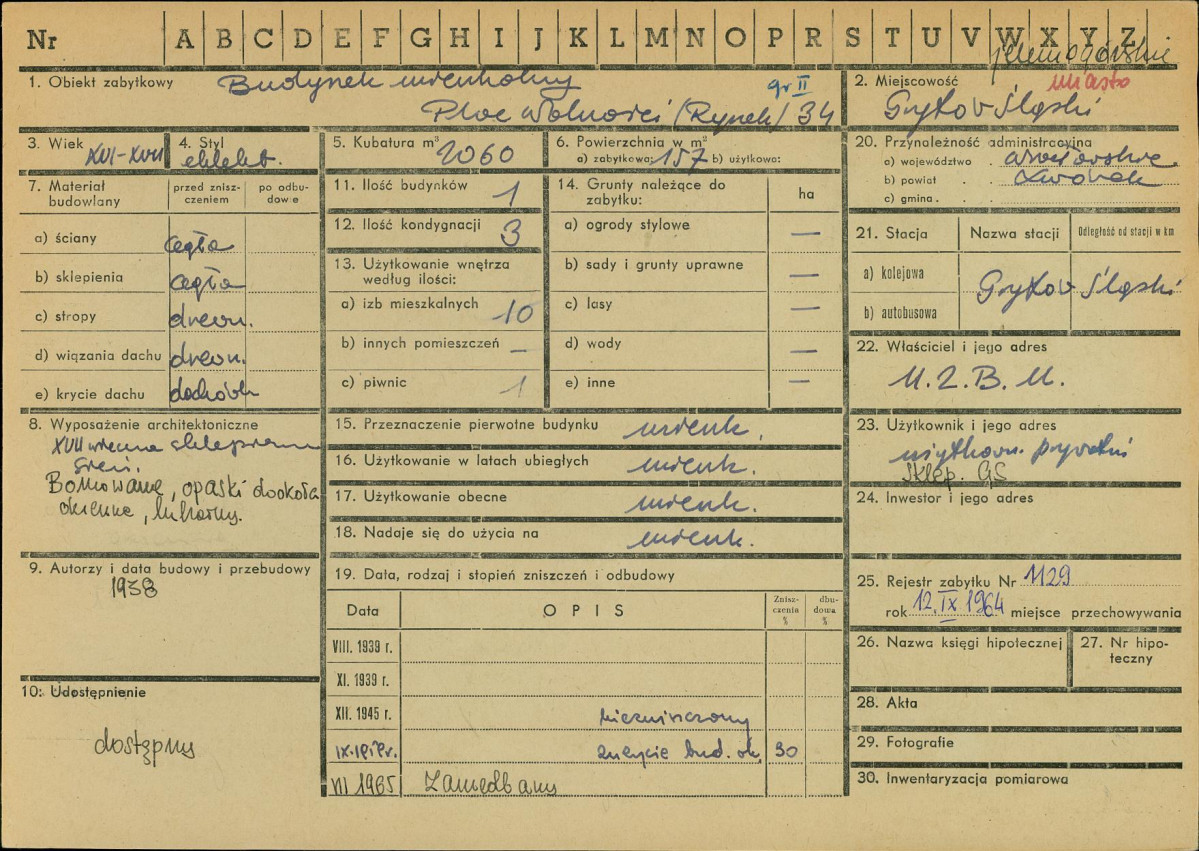 Nr A B C D E F G H I J K L M N O P R S T U V W X Y Z
jeleniogórskie
1. Obiekt zabytkowy Budynek mieszkalny
gr II
Plac Wolności (Rynek) 34
2. Miejscowość miasto
Gryfów Śląski
3. Wiek XVI-XVII
4. Styl eklekt.
5. Kubatura m³ 2060
6. Powierzchnia w m²
a) zabytkowa: 157 b) użytkowa:
20. Przynależność administracyjna
a) województwo wrocławskie
b) powiat Lwówek
c) gmina
7. Materiał budowlany
przed zniszczeniem
po odbudowie
a) ściany cegła
b) sklepienia cegła
c) stropy drewn.
d) wiązania dachu drewn.
e) krycie dachu dachówka
11. Ilość budynków 1
12. Ilość kondygnacji 3
13. Użytkowanie wnętrza
według ilości:
a) izb mieszkalnych 10
b) innych pomieszczeń –
c) piwnic 1
14. Grunty należące do
zabytku:
ha
a) ogrody stylowe —
b) sady i grunty uprawne —
c) lasy —
d) wody —
e) inne —
21. Stacja Nazwa stacji Odległość od stacji w km
a) kolejowa
Gryfów Śląski
b) autobusowa
22. Właściciel i jego adres
M.Z.B.M.
8. Wyposażenie architektoniczne
XVII wieczna sklepiona
sień.
Boniowanie, opaski dookoła
okienne, lukarny.
15. Przeznaczenie pierwotne budynku mieszk.
16. Użytkowanie w latach ubiegłych mieszk.
17. Użytkowanie obecne mieszk.
18. Nadaje się do użycia na mieszk.
23. Użytkownik i jego adres
użytkown. prywatni
Sklep. GS
24. Inwestor i jego adres
9. Autorzy i data budowy i przebudowy
1938
10. Udostępnienie
dostępny
19. Data, rodzaj i stopień zniszczeń i odbudowy
Data OPIS Zniszczenia % dbudowa %
VIII. 1939 r.
XI. 1939 r.
XII. 1945 r. niezniszczony
zużycie bud. ok. 30
VI 1965 Zaniedbany
25. Rejestr zabytku Nr 1129
rok 12.IX.1964 miejsce przechowywania
26. Nazwa księgi hipotecznej
27. Nr hipoteczny
28. Akta
29. Fotografie
30. Inwentaryzacja pomiarowa